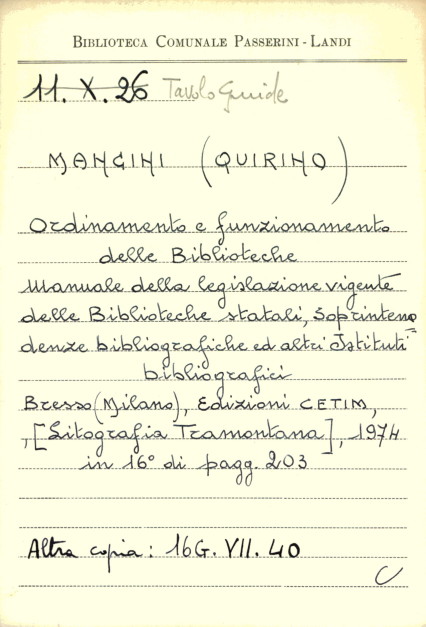 BIBLIOTECA COMUNALE PASSERINI-LANDI
11. X. 26 Tavolo Guide
MANCINI (QUIRINO)
Ordinamento e funzionamento
delle Biblioteche
Manuale della legislazione vigente
delle Biblioteche statali, Soprinten=
denze bibliografiche ed altri Istituti
bibliografici
Bresso (Milano), Edizioni CETIM,
,[Litografia Tramontana], 1974
in 16° di pagg. 203
Altra copia: 16G. VII. 40
C